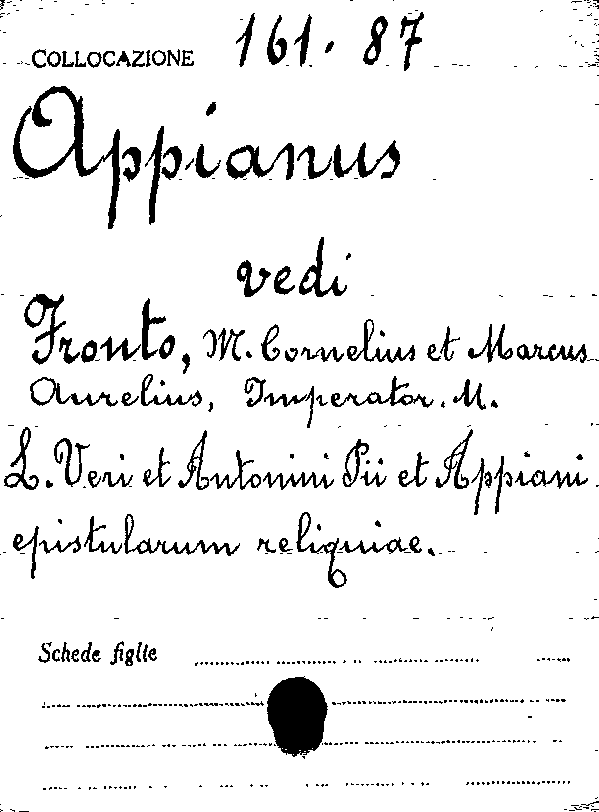 COLLOCAZIONE 161. 87
Appianus
vedi
Fronto, M. Cornelius et Marcus
Aurelius, Imperator. M.
L. Veri et Antonini Pii et Appiani
epistularum reliquiae.
Schede figlie